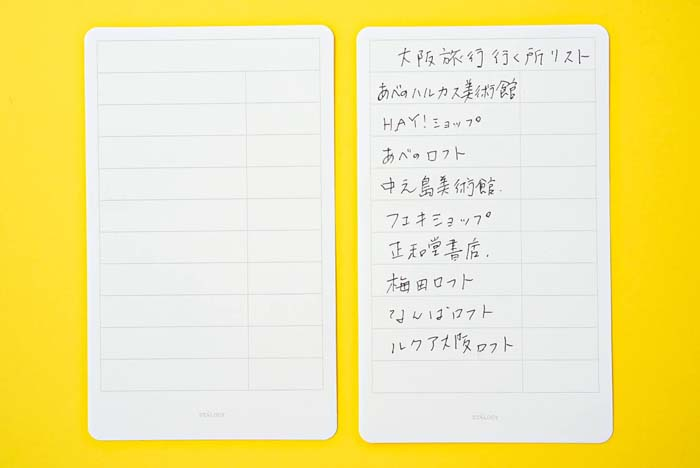 大阪旅行行く所リスト
あべのハルカス美術館
HAY!ショップ
あべのロフト
中之島美術館.
フエキショップ
正和堂書店.
梅田ロフト
なんばロフト
ルクア大阪ロフト
STALOGY
STALOGY